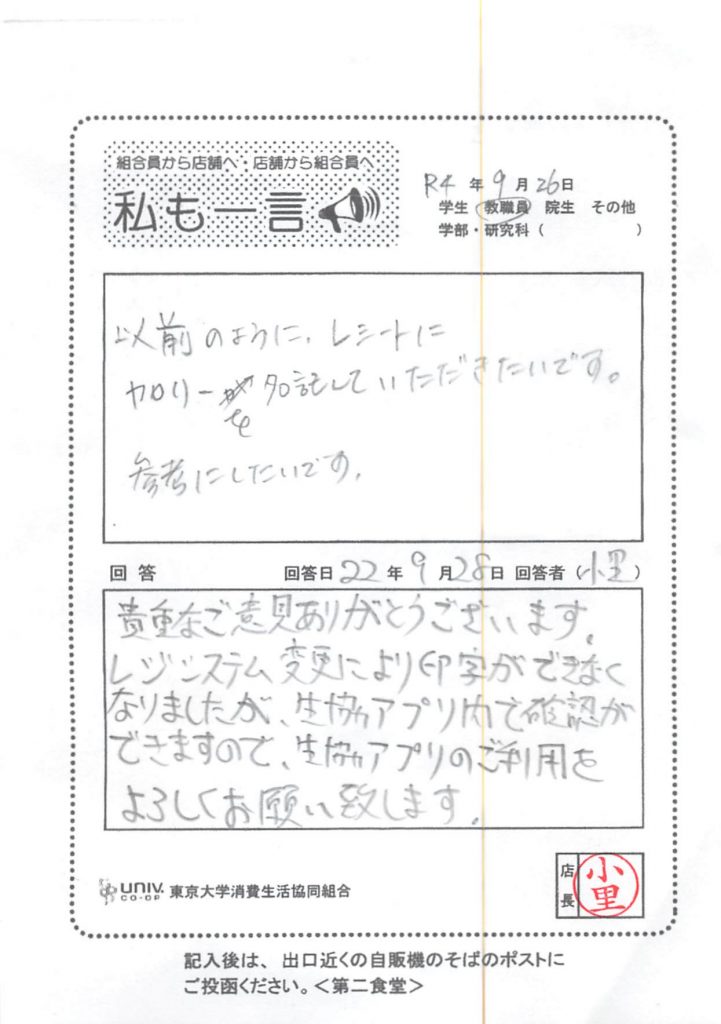 組合員から店舗へ・店舗から組合員へ
私も一言
R4 年 9 月 26 日
学生 教職員 院生 その他
学部・研究科（ ）
以前のように、レシートに
カロリーを印記していただきたいです。
参考にしたいです。
回答 回答日 22 年 9 月 28 日 回答者（小里）
貴重なご意見ありがとうございます。
レジシステム変更により印字ができなく
なりましたが、生協アプリ内で確認が
できますので、生協アプリのご利用を
よろしくお願い致します。
UNIV. CO-OP 東京大学消費生活協同組合
店長 小里
記入後は、出口近くの自販機のそばのポストに
ご投函ください。＜第二食堂＞